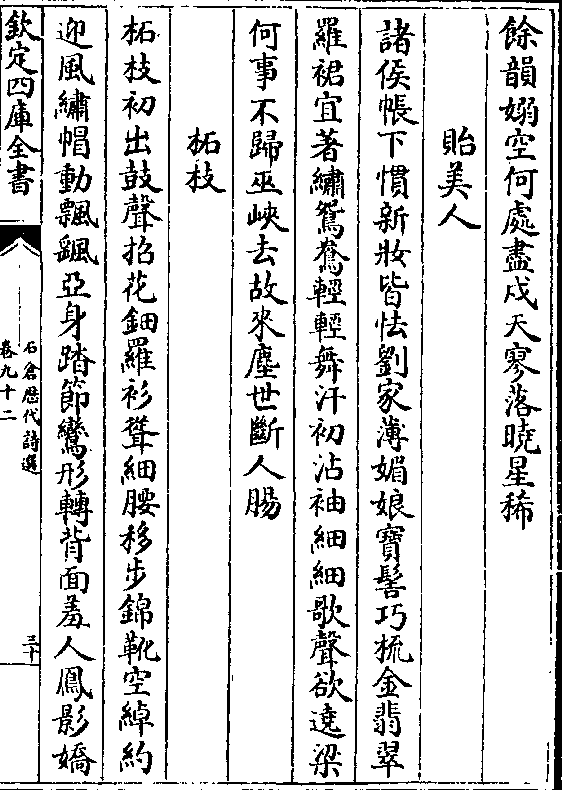 餘韻嫋空何處盡戍天寥落曉星稀
貽美人
諸侯帳下慣新妝皆怯劉家薄媚娘寳髻巧梳金翡翠
羅裙宜著繡鴛鴦輕輕舞汗初沾袖細細歌聲欲遶梁
何事不歸巫峽去故來塵世斷人腸
柘枝
柘枝初出鼓聲招花鈿羅衫聳細腰移步錦靴空綽約
迎風繡帽動飄颻亞身踏節鸞形轉背面羞人鳳影嬌
欽定四庫全書
石倉歴代詩選
卷九十二
三十